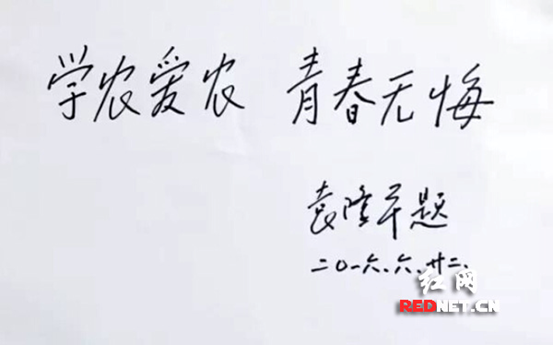 学农爱农 青春无悔
袁隆平题
二〇一六、六、廿二、
红网
REDNET.CN